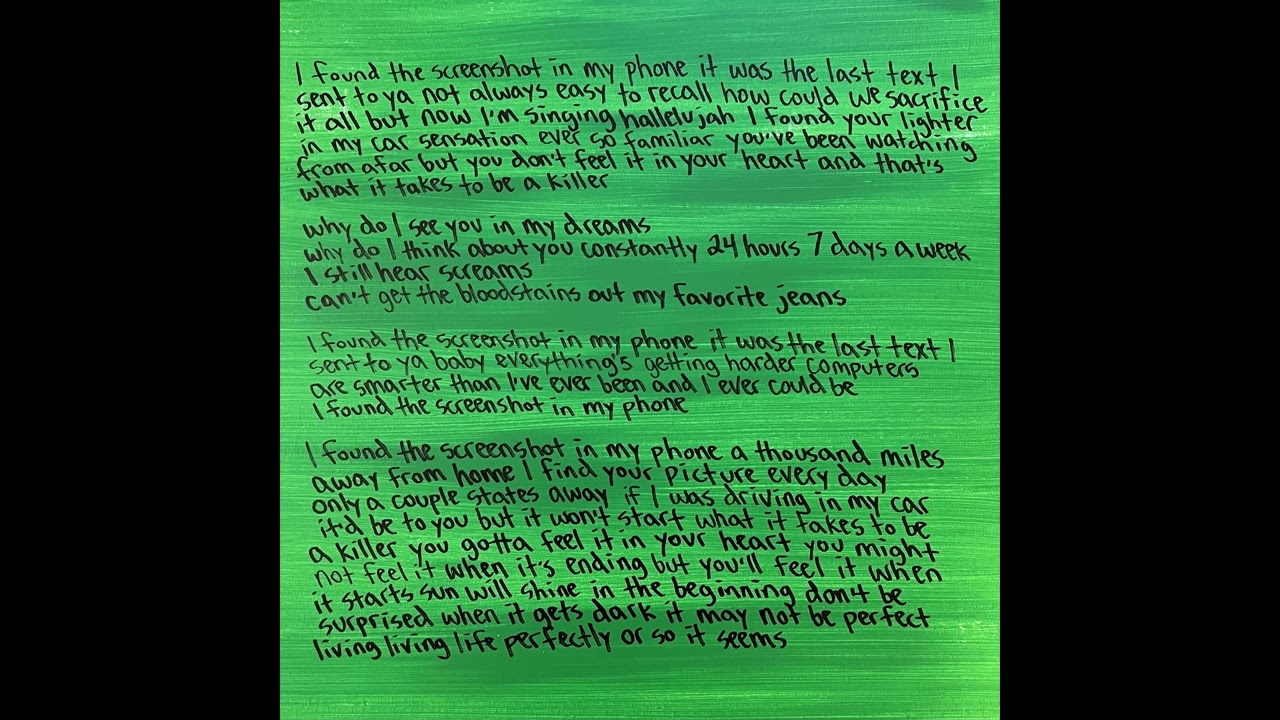 I found the screenshot in my phone it was the last text I
sent to ya not always easy to recall how could we sacrifice
it all but now I'm singing hallelujah I found your lighter
in my car sensation ever so familiar you've been watching
from afar but you don't feel it in your heart and that's
what it takes to be a killer
why do I see you in my dreams
why do I think about you constantly 24 hours 7 days a week
I still hear screams
can't get the bloodstains out my favorite jeans
I found the screenshot in my phone it was the last text I
sent to ya baby everything's getting harder computers
are smarter than I've ever been and I ever could be
I found the screenshot in my phone
I found the screenshot in my phone a thousand miles
away from home I find your picture every day
only a couple states away if I was driving in my car
it'd be to you but it won't start what it takes to be
a killer you gotta feel it in your heart you might
not feel it when it's ending but you'll feel it when
it starts sun will shine in the beginning don't be
surprised when it gets dark it may not be perfect
living living life perfectly or so it seems